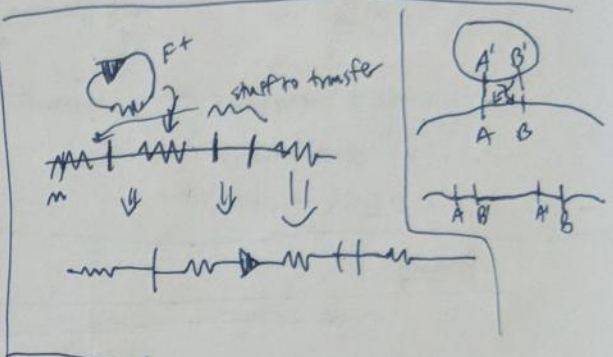 F+
stuff to transfer
A' B'
A B
A B' A' B